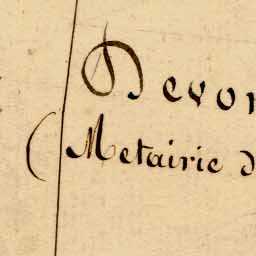 Devon
(Metairie d